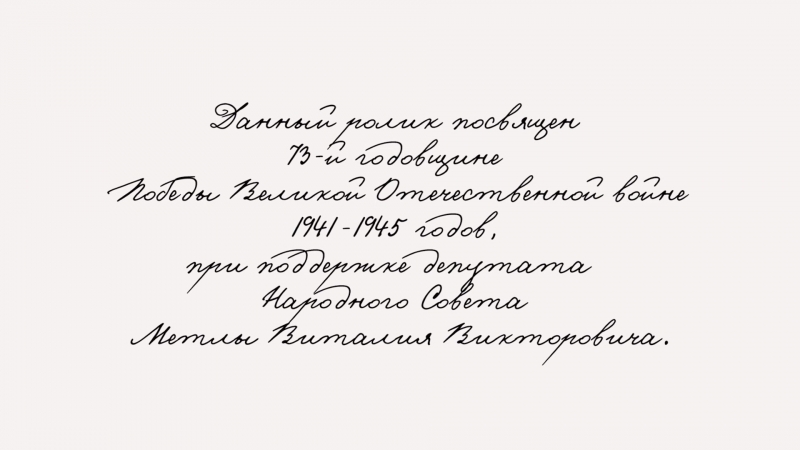 Данный ролик посвящен
73-й годовщине
Победы Великой Отечественной войне
1941-1945 годов,
при поддержке депутата
Народного Совета
Метлы Виталия Викторовича.